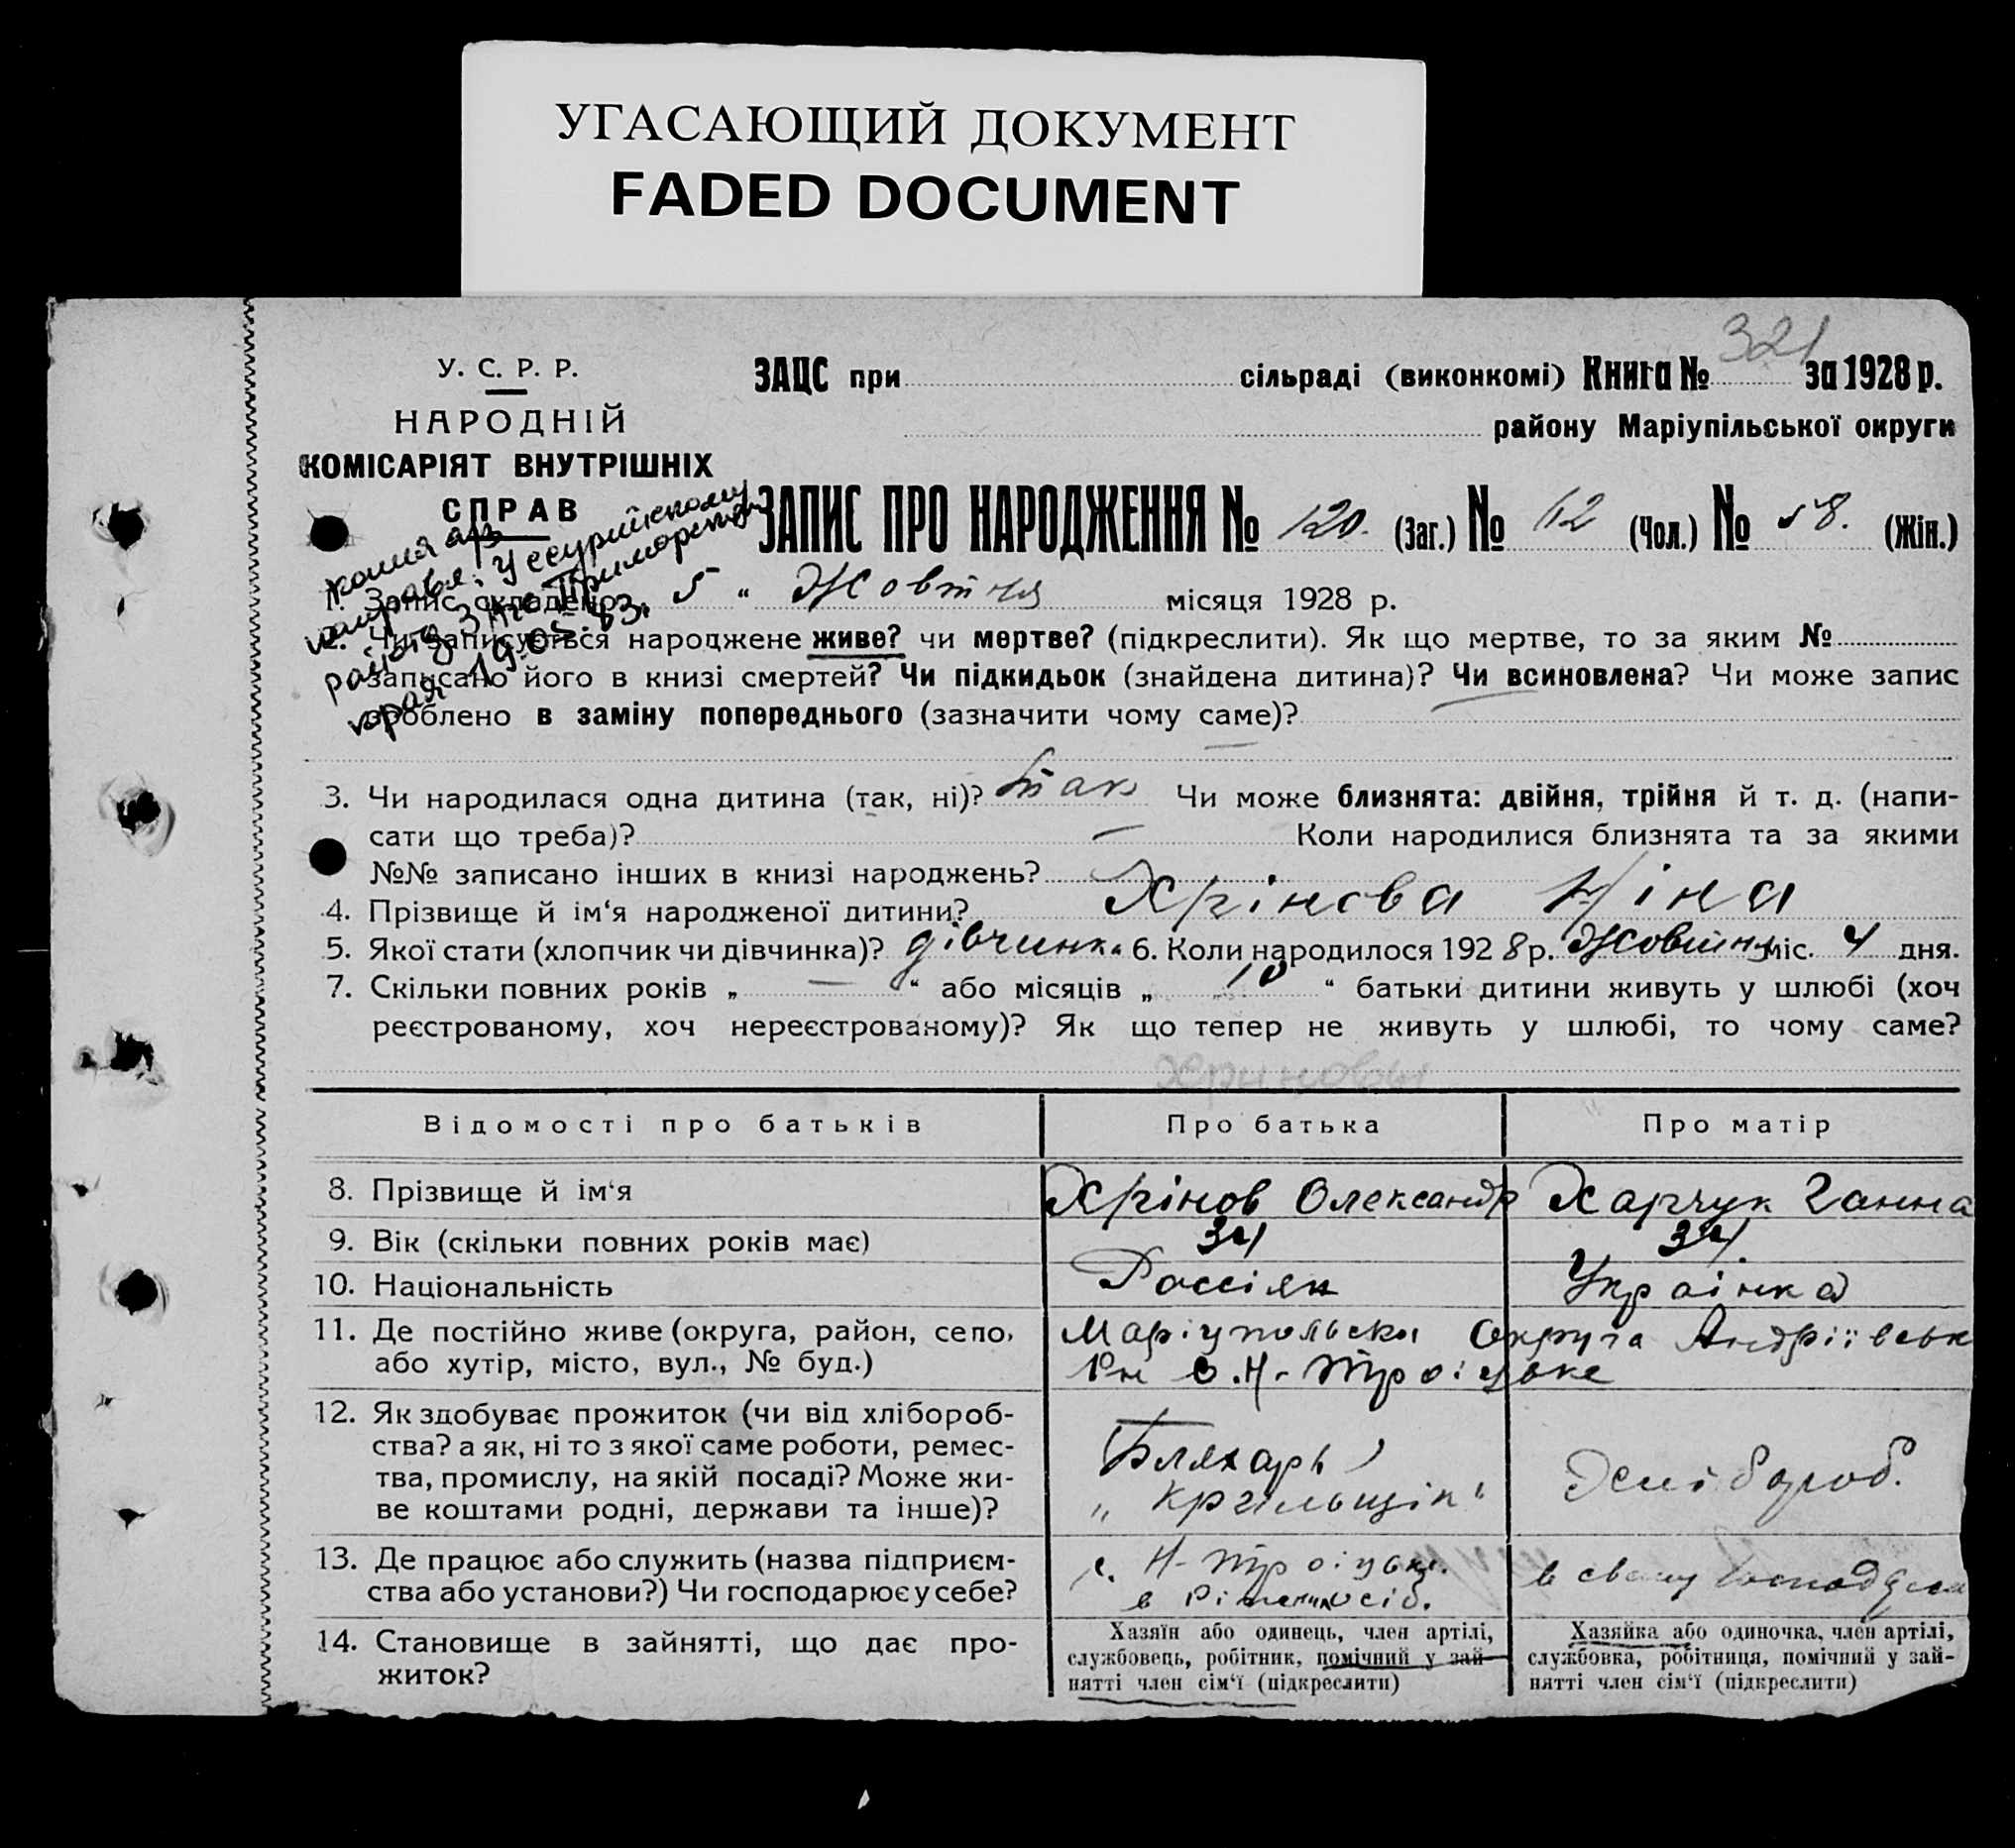 УГАСАЮЩИЙ ДОКУМЕНТ
FADED DOCUMENT
321
У. С. Р. Р.
НАРОДНІЙ
КОМІСАРІЯТ ВНУТРІШНІХ
СПРАВ
ЗАЦС при сільраді (виконкомі) Книга № за 1928 р.
району Маріупільської округи
ЗАПИС ПРО НАРОДЖЕННЯ № 120. (Заг.) № 62 (Чол.) № 58. (Жін.)
копия а/з
направл. Уссурийскому
райбюро ЗАГС Приморского
края 19.05.83.
1. Запис складено 5 " Жовтня місяця 1928 р.
2. Чи записується народжене живе? чи мертве? (підкреслити). Як що мертве, то за яким №
записано його в книзі смертей? Чи підкидьок (знайдена дитина)? Чи всиновлена? Чи може запис
зроблено в заміну попереднього (зазначити чому саме)?
3. Чи народилася одна дитина (так, ні)? так Чи може близнята: двійня, трійня й т. д. (напи-
сати що треба)? — Коли народилися близнята та за якими
№№ записано інших в книзі народжень? —
4. Прізвище й ім'я народженої дитини? Хрінова Ніна
5. Якої стати (хлопчик чи дівчинка)? дівчинка 6. Коли народилося 1928 р. Жовтня міс. 4 дня.
7. Скільки повних років „ — " або місяців „ 10 " батьки дитини живуть у шлюбі (хоч
реєстрованому, хоч нереєстрованому)? Як що тепер не живуть у шлюбі, то чому саме?
Хриновы
Відомості про батьків Про батька Про матір
8. Прізвище й ім'я Хрінов Олександр Харчук Ганна
9. Вік (скільки повних років має) 34 34.
10. Національність Россіян Українка
11. Де постійно живе (округа, район, село, Маріупольська Округа Андріївськ
або хутір, місто, вул., № буд.) Рн с. Н-Троіцьке
12. Як здобуває прожиток (чи від хлібороб-
ства? а як, ні то з якої саме роботи, ремес-
тва, промислу, на якій посаді? Може жи-
ве коштами родні, держави та інше)?
Бляхарь
Хлібороб.
13. Де працює або служить (назва підприєм-
ства або установи?) Чи господарює у себе?
с. Н-Троіцьке.
в свому
14. Становище в зайнятті, що дає про-
житок?
Хазяїн або одинець, член артілі,
службовець, робітник, помічний у зай-
нятті член сім'ї (підкреслити)
Хазяйка або одиночка, член артілі,
службовка, робітниця, помічний у зай-
нятті член сім'ї (підкреслити)